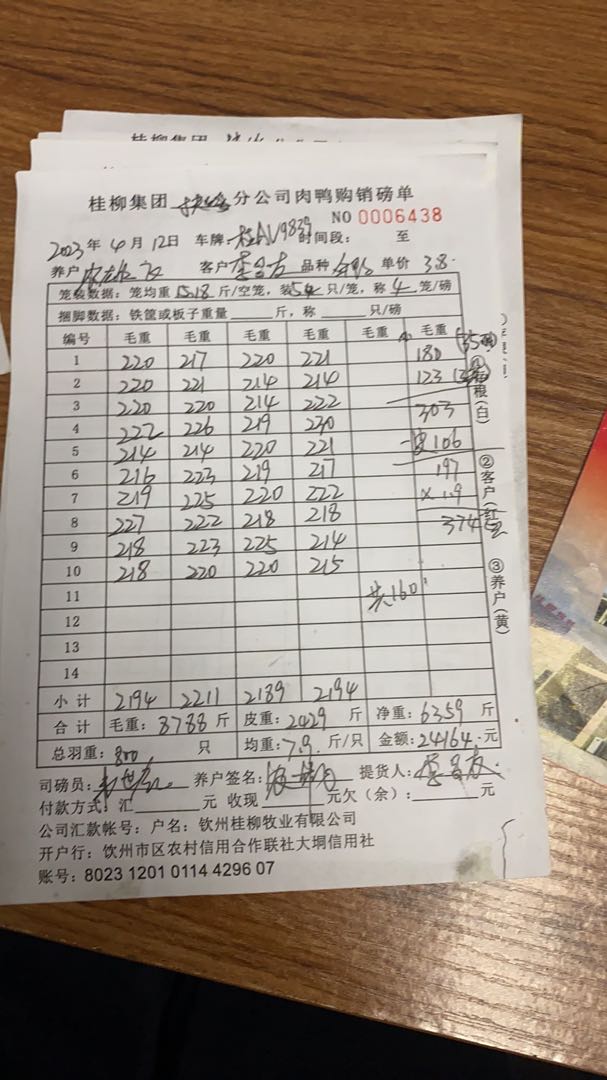 桂柳集团 分公司肉鸭购销磅单
NO 0006438
2023年4月12日 车牌 桂A 时间段： 至
养户 客户 李 友 品种 单价 3.8
笼装数据：笼均重15.18斤/空笼，装5 只/笼，称4笼/磅
捆脚数据：铁筐或板子重量 斤，称 只/磅
编号 毛重 毛重 毛重 毛重 毛重 毛重
1 220 217 220 221 180
2 220 221 214 214 123
3 220 220 214 222
4 222 226 219 230 303
5 214 214 220 221 106
6 216 223 219 217 197
7 219 225 220 222 ×1.9
8 227 222 218 218 374
9 218 223 225 214
10 218 220 220 215
11 共160
12
13
14
小计 2194 2211 2189 2194
合计 毛重：8788斤 皮重：2429斤 净重：6359斤
总羽重：800只 均重：7.9斤/只 金额：24164元
司磅员： 养户签名： 提货人：李 友
付款方式：汇 元 收现 元欠（余）： 元
公司汇款帐号：户名：钦州桂柳牧业有限公司
开户行：钦州市区农村信用合作联社大垌信用社
账号：8023 1201 0114 4296 07
①存根（白）
②客户（红）
③养户（黄）